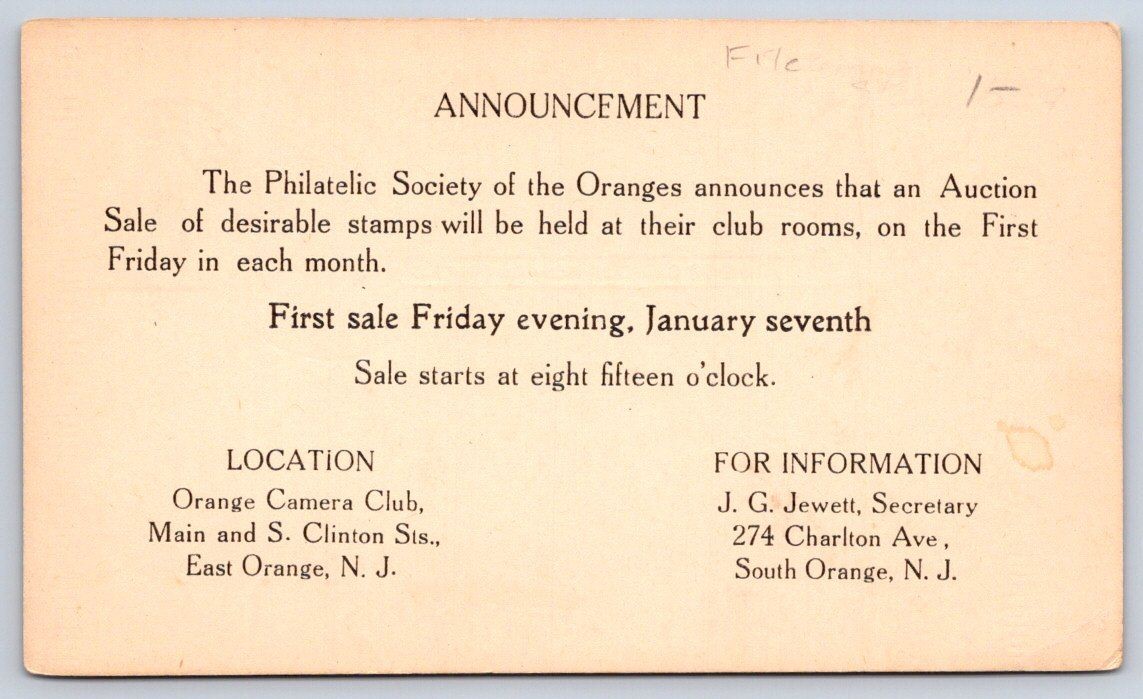 File
1-
ANNOUNCEMENT
The Philatelic Society of the Oranges announces that an Auction
Sale of desirable stamps will be held at their club rooms, on the First
Friday in each month.
First sale Friday evening, January seventh
Sale starts at eight fifteen o'clock.
LOCATION
Orange Camera Club,
Main and S. Clinton Sts.,
East Orange, N. J.
FOR INFORMATION
J. G. Jewett, Secretary
274 Charlton Ave,
South Orange, N. J.